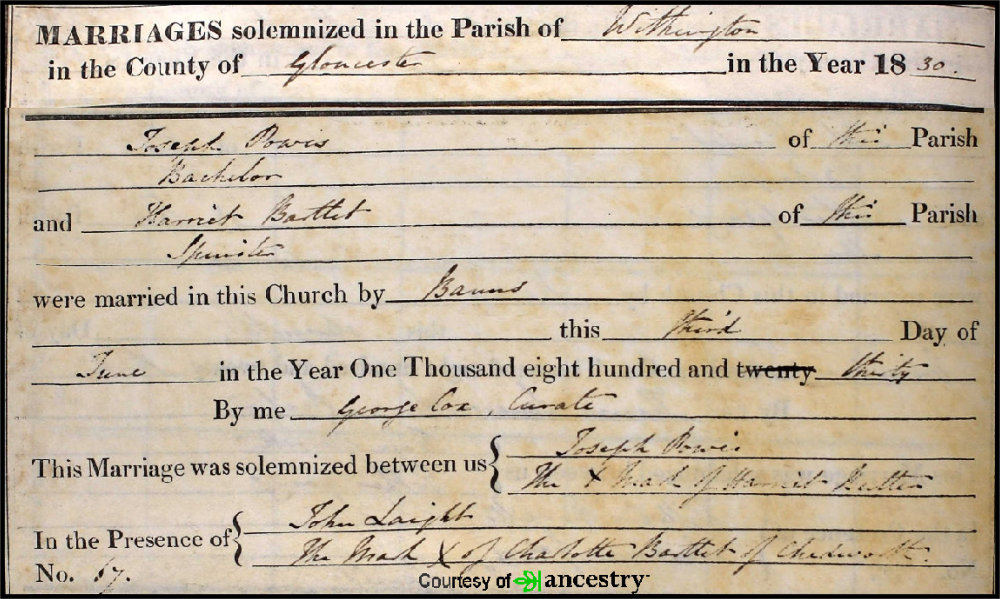 MARRIAGES solemnized in the Parish of Withington
in the County of Gloucester in the Year 18 30.
Joseph Powis of this Parish
Bachelor
and Harriet Bartlet of this Parish
Spinster
were married in this Church by Banns
this third Day of
June in the Year One Thousand eight hundred and twenty thirty
By me George Cox, Curate
This Marriage was solemnized between us { Joseph Powis
The X Mark of Harriet
In the Presence of { John Laight
The Mark X of Charlotte Bartlet of Chedworth.
No. 67.
Courtesy of ancestry